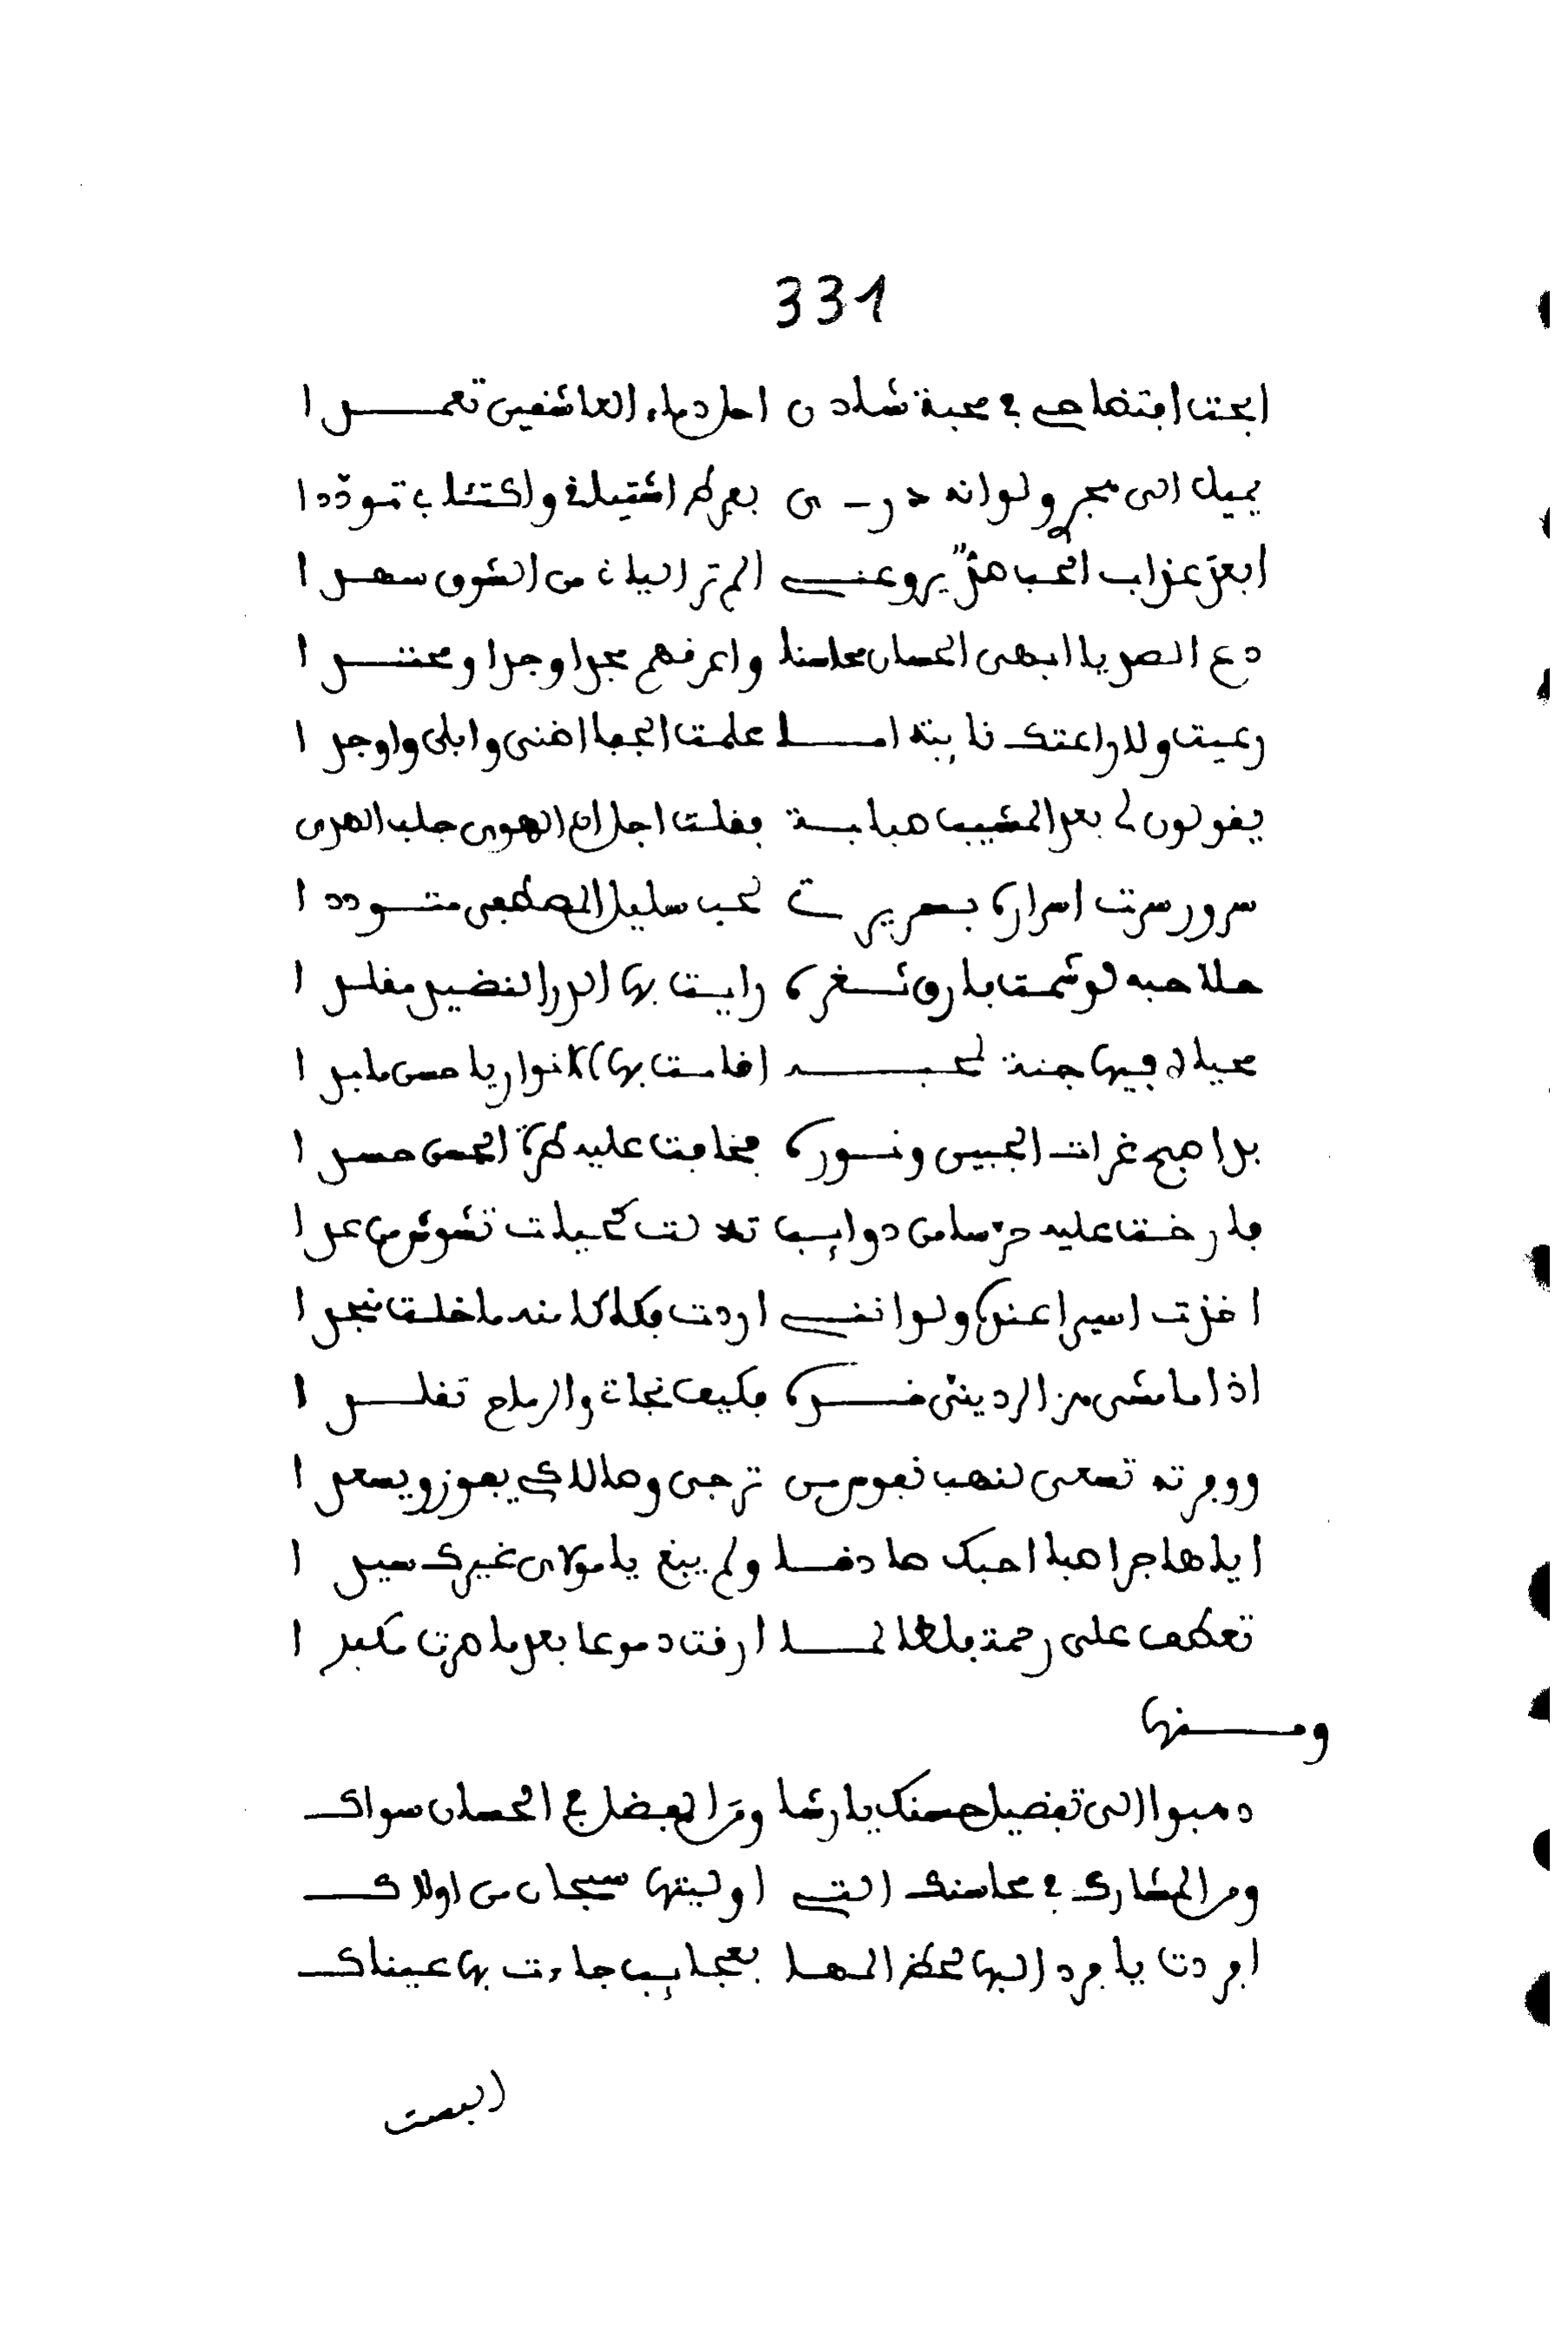 331
ابحت افتضاحي في محبة شادن احل دماء العاشقين تعمدا
يميل الى هجر ولو انه درى بعد له اشتياق واكتئاب تموددا
ابعد عذاب الحب هذ يروعني الم تر اليك من الشوق سهدا
دع الصد يا ابهى الحسان محاسنا واعرفهم مجدا وجدا ومحتدا
رعيت ولا راعتك نايبة اما علمت الجفا اضنى وابلى واوجدا
يقولون لي بعد المشيب صبابة فقلت اجل ان الهوى جلب الهدى
سرور سرت اسراره بسريرت لحب سليل المصطفى متوددا
ملاحبه لو شمت بارق ثغره رايت بها الدر النضيد مقلدا
محياه فيها جنة لمحبه اقامت بها الانوار يا حسن ما بدا
بدا صبح غرات الجبين ونوره فخافت عليه طرة الحسن حسدا
فارخت عليه حرسا من دوايب تدلت كحيات تشوش من عدا
اخذت اسيرا عنوة ولو انني اردت فكاكا منه ما خلت منجدا
اذا ما مشى هز الرديني قده فكيف نجاة والرماح تقلدا
ووفرته تسعى لنهب نفوس من ترجى وصالا كي يفوز ويسعدا
ايا هاجرا صبا احبك صادقا ولم يبغ يا مولاي غيرك سيدا
تعطف على رحمة بلقا لما ارقت دموعا بعد ما صرت مكبدا
ومنها
ذهبوا الى تفضيل حسنك يا رشا ومن المفضل في الحسان سواك
ومن المشارك في محاسنك التي اوليتها سبحان من اولاك
افردت يا فرد البها لحظ المها بعجايب جاءت بها عيناك
البست